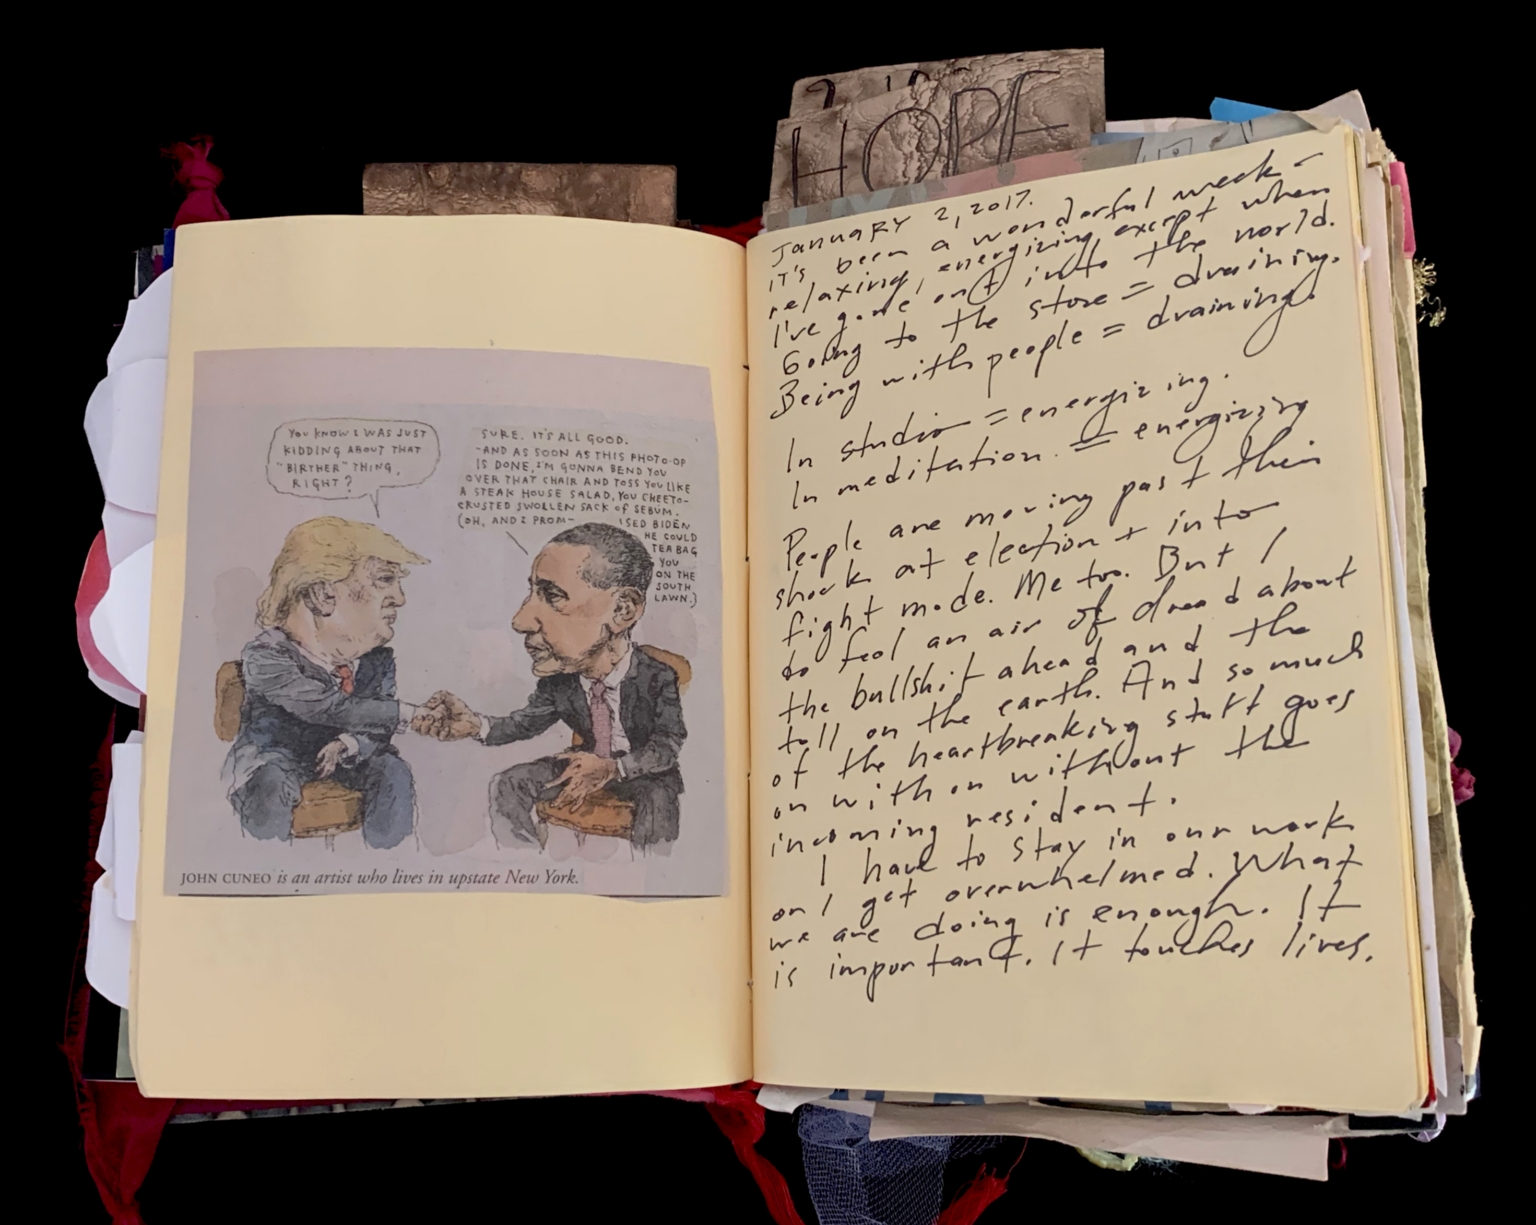 HOPE
YOU KNOW I WAS JUST
KIDDING ABOUT THAT
"BIRTHER" THING,
RIGHT?
SURE. IT'S ALL GOOD.
-AND AS SOON AS THIS PHOTO-OP
IS DONE, I'M GONNA BEND YOU
OVER THAT CHAIR AND TOSS YOU LIKE
A STEAK HOUSE SALAD, YOU CHEETO-
CRUSTED SWOLLEN SACK OF SEBUM.
(OH, AND I PROM- ISED BIDEN
HE COULD
TEA BAG
YOU
ON THE
SOUTH
LAWN.)
JOHN CUNEO is an artist who lives in upstate New York.
JANUARY 2, 2017.
IT'S been a wonderful week-
relaxing, energizing except when
I've gone out into the world.
Going to the store = draining.
Being with people = draining.
In studio = energizing.
In meditation = energizing
People are moving past their
shock at election + into
fight mode. Me too. But I
do feel an air of dread about
the bullshit ahead and the
toll on the earth. And so much
of the heartbreaking stuff goes
on with or without the
incoming resident.
I have to stay in our work
or I get overwhelmed. What
we are doing is enough. It
is important. It touches lives.